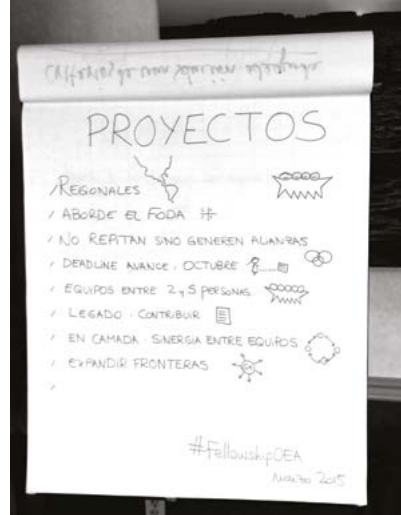 Criterios de
PROYECTOS
/ REGIONALES
/ ABORDE EL FODA #
/ NO REPITAN SINO GENEREN ALIANZAS
/ DEADLINE AVANCE · OCTUBRE
/ EQUIPOS ENTRE 2 y 5 PERSONAS
/ LEGADO · CONTRIBUIR
/ EN CAMADA · SINERGIA ENTRE EQUIPOS
/ EXPANDIR FRONTERAS
/
#FellowshipOEA
marzo 2015